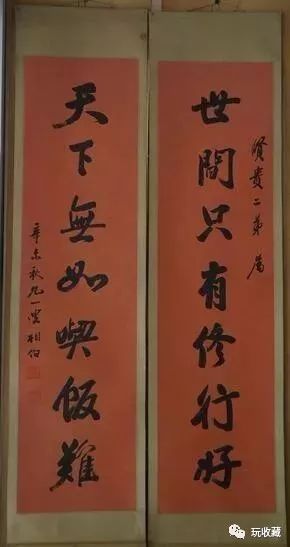 世間只有修行好
賢貴二弟屬
天下無如喫飯難
辛未秋九一叟相伯
玩收藏